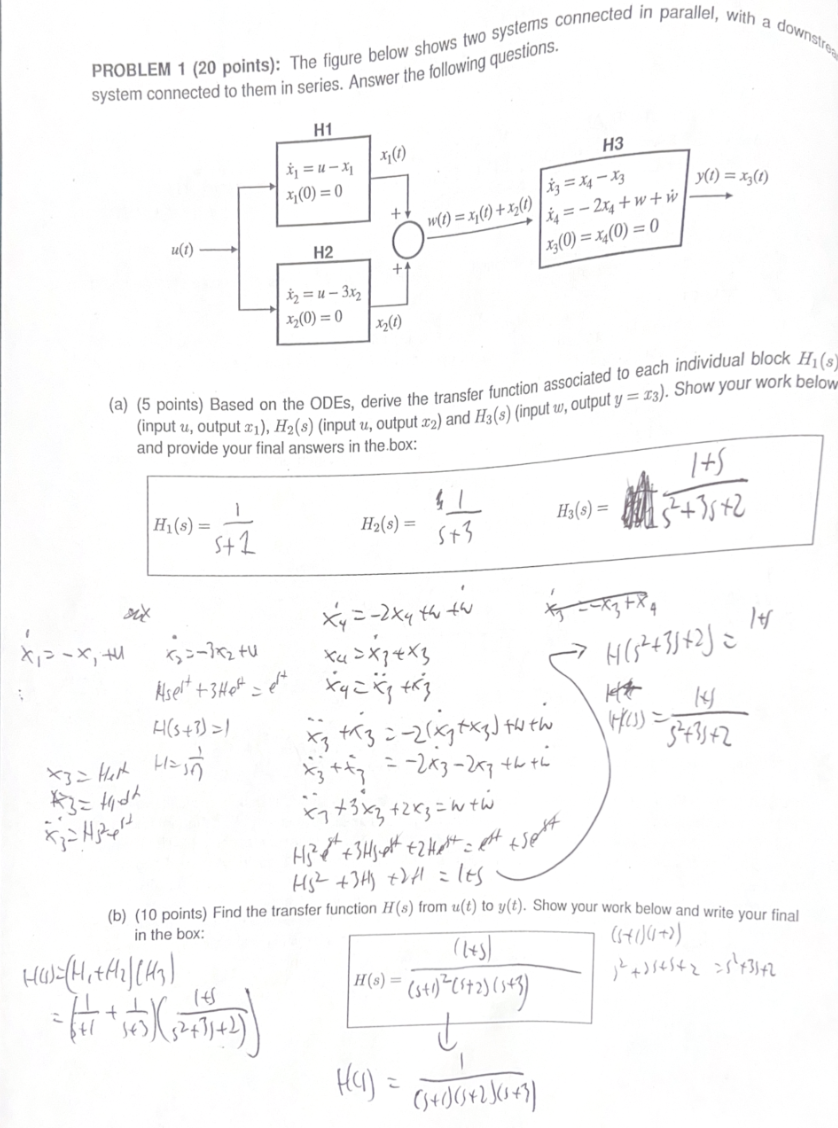 PROBLEM 1 (20 points): The figure below shows two systems connected in parallel, with a downstrea
system connected to them in series. Answer the following questions.
H1
ẋ₁ = u − x₁
x₁(0) = 0
x₁(t)
H3
ẋ₃ = x₄ − x₃
ẋ₄ = − 2x₄ + w + ẇ
x₃(0) = x₄(0) = 0
y(t) = x₃(t)
+
w(t) = x₁(t) + x₂(t)
u(t)
H2
+
ẋ₂ = u − 3x₂
x₂(0) = 0
x₂(t)
(a) (5 points) Based on the ODEs, derive the transfer function associated to each individual block H₁(s)
(input u, output x₁), H₂(s) (input u, output x₂) and H₃(s) (input w, output y = x₃). Show your work below
and provide your final answers in the box:
H₁(s) = 1/(s+1)
H₂(s) = 1/(s+3)
H₃(s) = (1+s)/(s²+3s+2)
ẋ₁ = −x₁ +u
ẋ₂ = −3x₂ +u
Hse^st + 3He^st = e^st
H(s+3) = 1
x₃ = He^st
ẋ₃ = Hse^st
ẍ₃ = Hs²e^st
ẋ₄ = −2x₄ +w +ẇ
x₄ = ẋ₃ + x₃
ẋ₄ = ẍ₃ + ẋ₃
ẍ₃ + ẋ₃ = −2(ẋ₃+x₃) +w +ẇ
ẍ₃ + ẋ₃ = −2ẋ₃ − 2x₃ +w +ẇ
ẍ₃ +3ẋ₃ +2x₃ = w +ẇ
Hs²e^st +3Hse^st +2He^st = e^st +se^st
Hs² +3Hs +2H = 1+s
ẋ₃ = −x₃ + x₄
→ H(s²+3s+2) = 1+s
H(s) = (1+s)/(s²+3s+2)
(b) (10 points) Find the transfer function H(s) from u(t) to y(t). Show your work below and write your final
in the box:
H(s) = (H₁+H₂)(H₃)
= (1/(s+1) + 1/(s+3))((1+s)/(s²+3s+2))
H(s) = (1+s)/((s+1)²(s+2)(s+3))
(s+1)(s+2)
s²+2s+s+2 = s²+3s+2
H(s) = 1/((s+1)(s+2)(s+3))